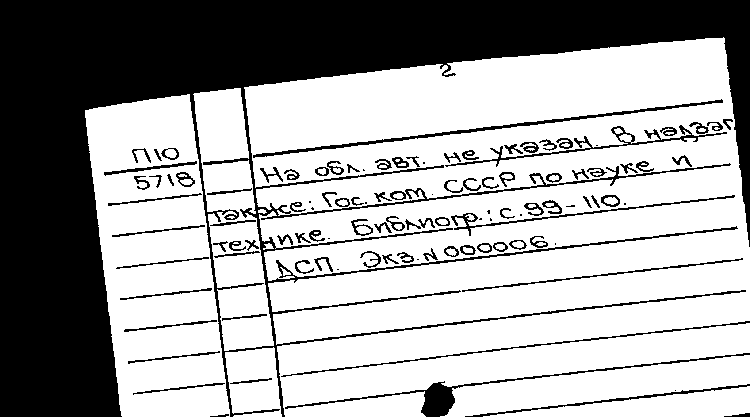 2
ПЮ
5718
На обл. авт. не указан. В надзаг.
также: Гос. ком. СССР по науке и
технике. Библиогр.: с. 99-110.
ДСП. Экз. N 000006.